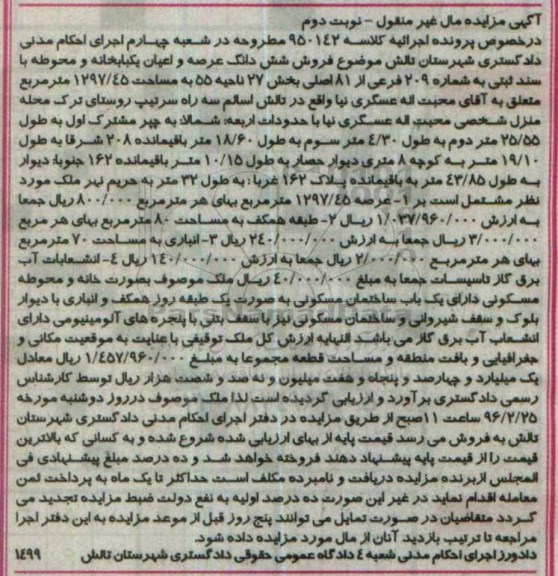 آگهی مزایده مال غیر منقول - نوبت دوم
درخصوص پرونده اجرائیه کلاسه ۹۵۰۱۴۲ مطروحه در شعبه چهارم اجرای احکام مدنی
دادگستری شهرستان تالش موضوع فروش شش دانگ عرصه و اعیان یکبابخانه و محوطه با
سند ثبتی به شماره ۲۰۹ فرعی از ۸۱ اصلی بخش ۲۷ ناحیه ۵۵ به مساحت ۱۲۹۷/۴۵ مترمربع
متعلق به آقای محبت اله عسگری نیا واقع در تالش اسالم سه راه سرتیپ روستای ترک محله
منزل شخصی محبت اله عسگری نیا با حدودات اربعه: شمالا: به چپر مشترک اول به طول
۲۵/۵۵ متر دوم به طول ۴/۳۰ متر سوم به طول ۱۸/۶۰ متر باقیمانده ۲۰۸ شرقا به طول
۱۹/۱۰ متر به کوچه ۸ متری دیوار حصار به طول ۱۰/۱۵ متر باقیمانده ۱۶۲ جنوبا: دیوار
به طول ۴۳/۸۵ متر به باقیمانده پلاک ۱۶۲ غربا: به طول ۳۲ متر به حریم نهر ملک مورد
نظر مشتمل است بر ۱- عرصه ۱۲۹۷/۴۵ مترمربع بهای هر مترمربع ۸۰۰/۰۰۰ ریال جمعا
به ارزش ۱/۰۳۷/۹۶۰/۰۰۰ ریال ۲- طبقه همکف به مساحت ۸۰ مترمربع بهای هر مربع
۳/۰۰۰/۰۰۰ ریال جمعا به ارزش ۲۴۰/۰۰۰/۰۰۰ ریال ۳- انباری به مساحت ۷۰ مترمربع
بهای هر مترمربع ۲/۰۰۰/۰۰۰ ریال جمعا به ارزش ۱۴۰/۰۰۰/۰۰۰ ریال ۴- انشعابات آب
برق گاز تاسیسات جمعا به مبلغ ۴۰/۰۰۰/۰۰۰ ریال ملک موصوف بصورت خانه و محوطه
مسکونی دارای یک باب ساختمان مسکونی به صورت یک طبقه روز همکف و انباری با دیوار
بلوک و سقف شیروانی و ساختمان مسکونی نیز با سقف بتنی با پنجره های آلومینیومی دارای
انشعاب آب برق گاز می باشد النهایه ارزش کل ملک توقیفی با عنایت به موقعیت مکانی و
جغرافیایی و بافت منطقه و مساحت قطعه مجموعا به مبلغ ۱/۴۵۷/۹۶۰/۰۰۰ ریال معادل
یک میلیارد و چهارصد و پنجاه و هفت میلیون و نه صد و شصت هزار ریال توسط کارشناس
رسمی دادگستری برآورد و ارزیابی گردیده است لذا ملک موصوف درروز دوشنبه مورخه
۹۶/۲/۲۵ ساعت ۱۱صبح از طریق مزایده در دفتر اجرای احکام مدنی دادگستری شهرستان
تالش به فروش می رسد قیمت پایه از بهای ارزیابی شده شروع شده و به کسانی که بالاترین
قیمت را از قیمت پایه پیشنهاد دهند فروخته خواهد شد و ده درصد مبلغ پیشنهادی فی
المجلس ازبرنده مزایده دریافت و نامبرده مکلف است حداکثر تا یک ماه به پرداخت ثمن
معامله اقدام نماید در غیر این صورت ده درصد اولیه به نفع دولت ضبط مزایده تجدید می
گردد متقاضیان در صورت تمایل می توانند پنج روز قبل از موعد مزایده به این دفتر اجرا
مراجعه تا ترتیب بازدید آنان از مال مورد مزایده داده شود.
دادورز اجرای احکام مدنی شعبه ۴ دادگاه عمومی حقوقی دادگستری شهرستان تالش ۱۴۹۹